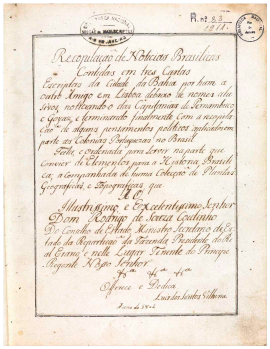 Recopilação de Noticias Brasilicas
Contidas em tres Cartas
Escriptas da Cidade da Bahia por hum a
outro Amigo em Lisboa debaixo de nomes alu
sivos, noticiando das Capitanias de Pernambuco
e Goyaz, e terminando finalmente com a recopila
ção de alguns pensamentos politicos applicaveis em
parte às Colonias Portuguezas no Brasil.
Feita e ordenada para servir na parte que
convier de Elementos para a Historia Brasili
ca; acompanhada de huma Colecção de Plantas
Geograficas, e Topograficas que
Illustrissimo e Excelentissimo Senhor
Dom Rodrigo de Souza Coutinho
Do Conselho de Estado Ministro Secretario de Es
tado da Repartição da Fazenda Presidente do Re
al Erario, e nelle Lugar Tenente do Principe
Regente N. Senhor
Offerece e Dedica
Luis dos Santos Vilhena